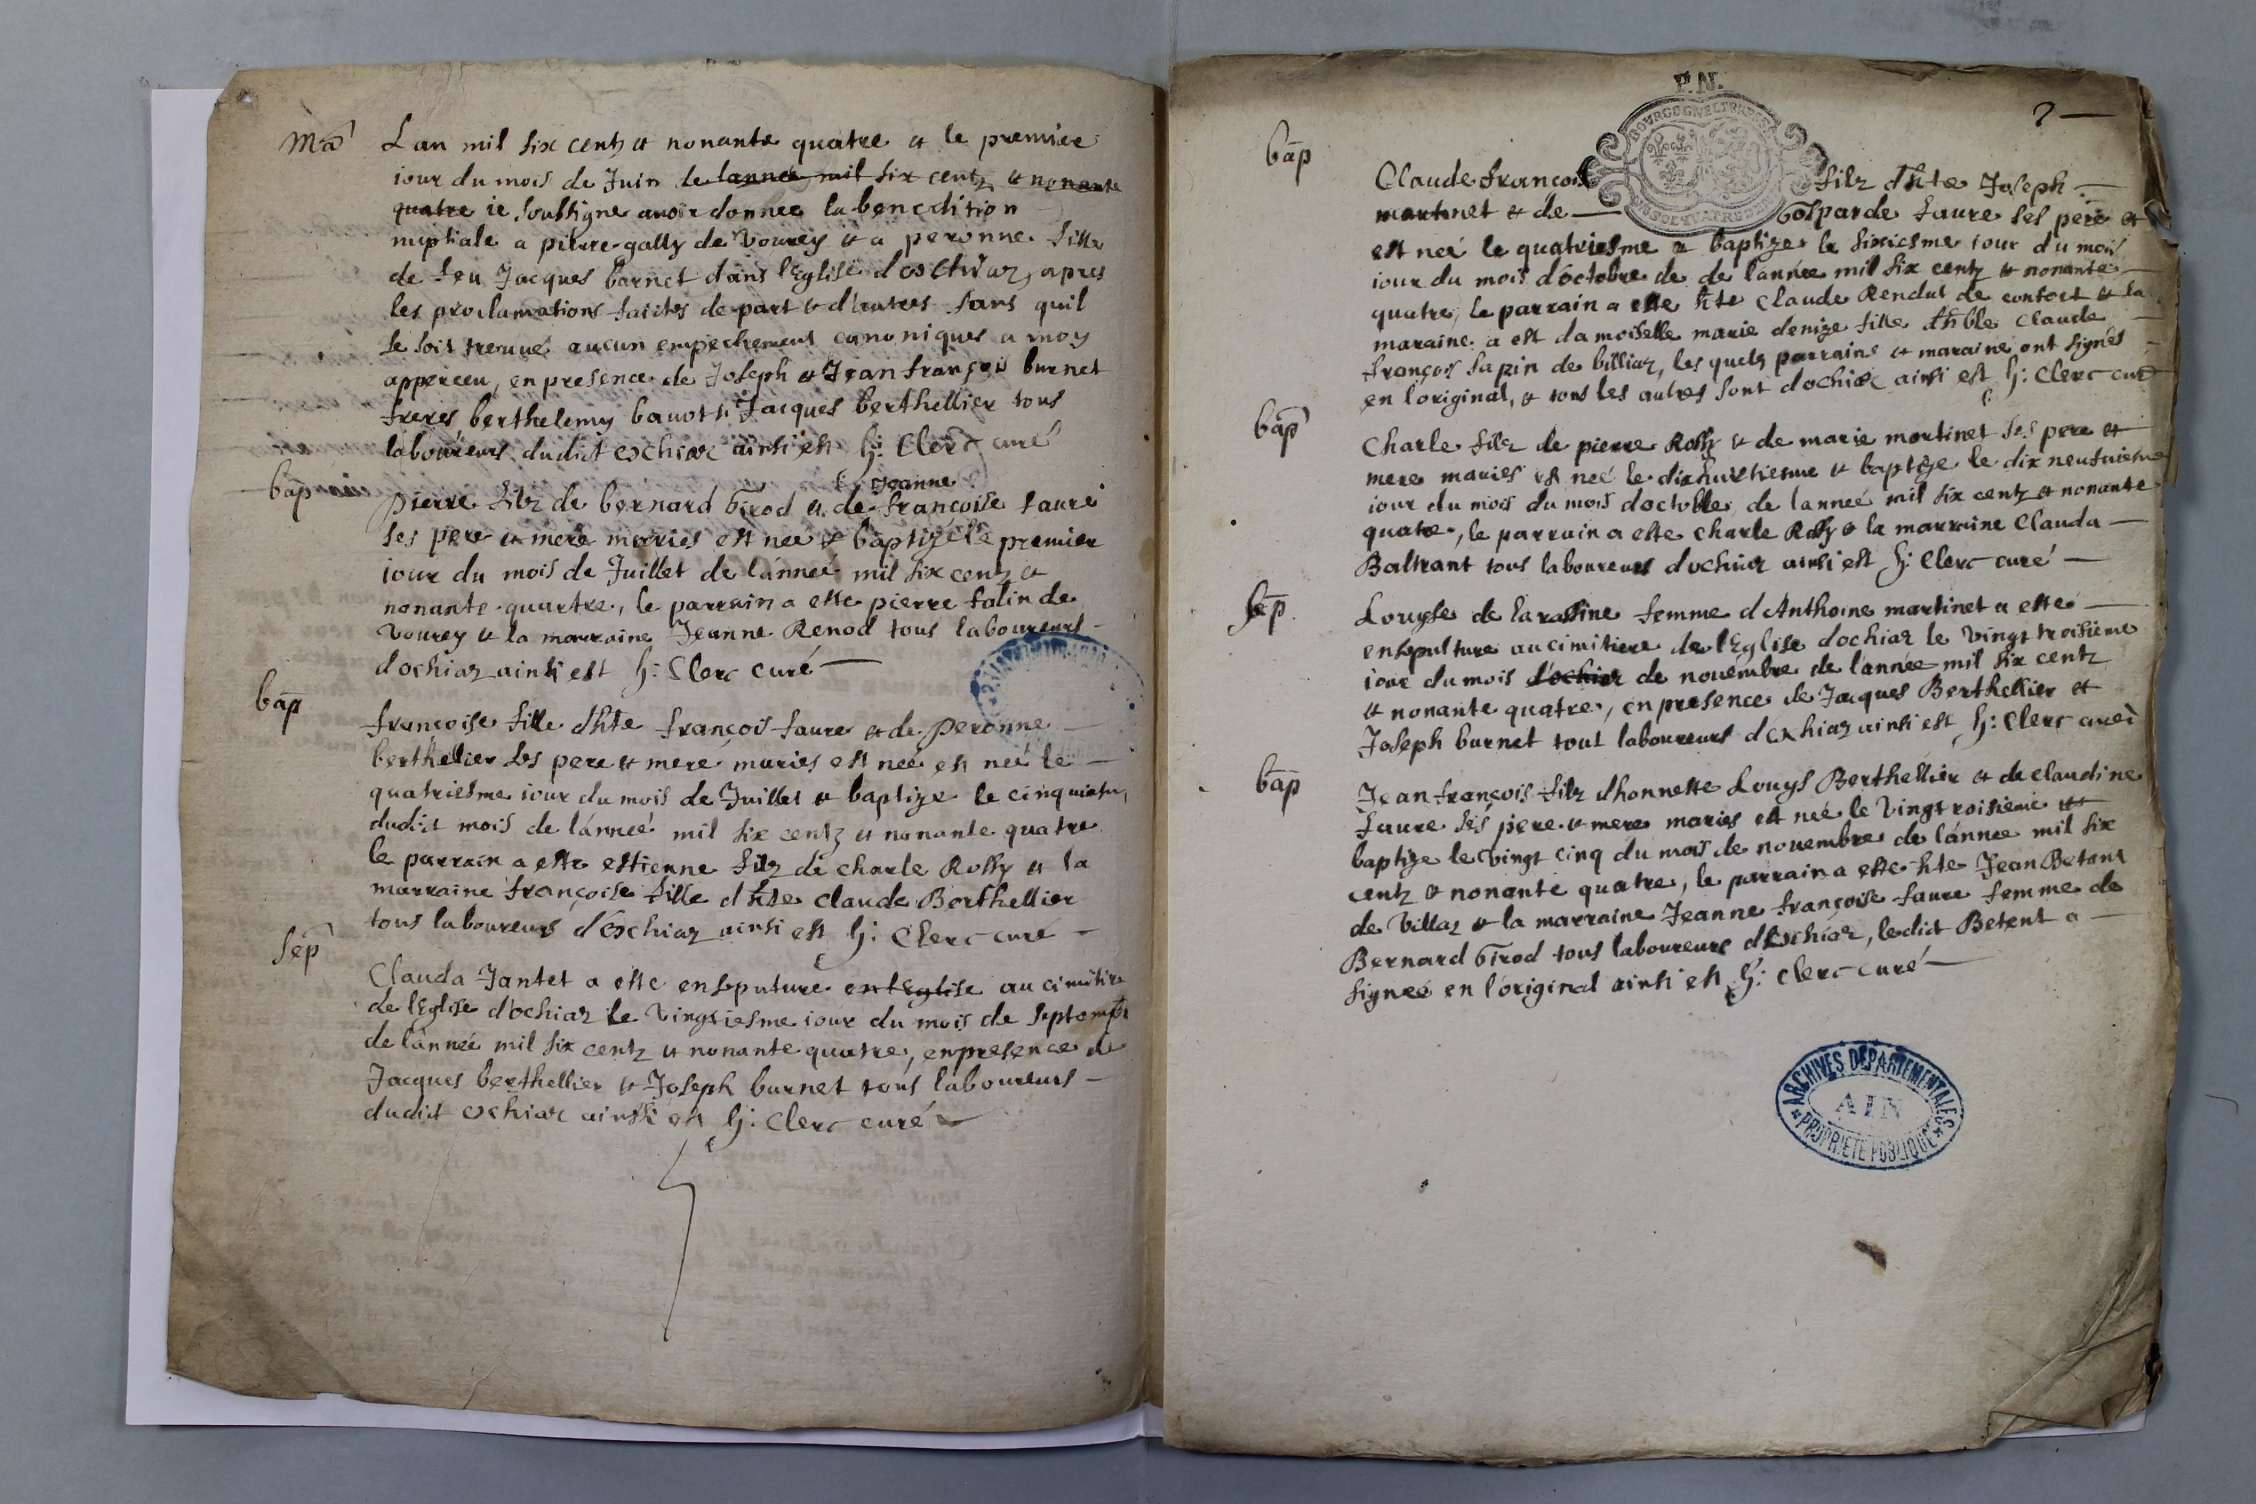 Mã
Lan mil six centz et nonante quatre et le premier
iour du mois de Juin de lannee mil six centz et nonante
quatre ie soubsigne avoir donnee la benedition
nuptiale a pierre gally de Vourey et a peronne fille
de feu Jacques barnet dans l'Eglise dochiaz, apres
les proclamations faictes de part et d'autres sans quil
se soit treuué aucun empechement canoniques a moy
apperceu, en presence de Joseph et Jean françois burnet
freres, berthelemy Jacques berthellier tous
laboureurs dudict ochiaz ainsi est h: Clerc curé
bap
Jeanne
pierre filz de bernard Girod et de francoise faure
ses pere et mere mariés est neé et baptizé le premier
iour du mois de Juillet de lánneé mil six centz et
nonante quartre, le parrain a este pierre falin de
Vourey et la marraine Jeanne Renod tous laboureurs
dochiaz ainsi est h: Clerc curé
bap
francoise fille dhte françois faure et de peronne
berthelier ses pere et mere mariés est neé est neé le
quatriesme iour du mois de Juillet et baptize le cinquiesm,
dudict mois de lánneé mil six centz et nonante quatre
le parrain a este estienne filz de charle Rossy et la
marraine françoise fille dhte claude Berthellier
tous laboureurs dochiaz ainsi est h: Clerc curé
sep
Clauda Jantet a este enseputure en lEglise au cimitire
de lEglise d'ochiaz le Vingtiesme iour du mois de septembr
de lánneé mil six centz et nonante quatre, en presence de
Jacques berthellier et Joseph burnet tous laboureurs
dudict ochiaz ainssi est h: Clerc curé
P.N.
2
bap
Claude francois filz dhte Joseph
martinet et de Gasparde faure ses pere et
est neé le quatriesme et baptize le sixiesme iour du mois
iour du mois d'octobre de de lánnée mil six centz et nonante
quatre, le parrain a este hte Claude Rendut de confort et la
maraine a est damoiselle marie denize fille dhble Claude
françois sapin de billiaz, les quels parraine et maraine ont signés
en l'original, et tous les autres sont dochiaz ainsi est h: Clerc curé
bap
Charle filz de pierre Rossy et de marie martinet ses pere et
mere mariés est neé le dixhuictiesme et baptize le dix neufuiesme
iour du mois du mois doctobre de lanneé mil six centz et nonante
quatre, le parrain a este charle Rossy et la marraine Clauda
Baltrant tous laboureurs dochiaz ainsi est h: Clerc curé
sep
Louyse de la femme dAnthoine martinet a esté
ensepulture au cimitiere de lEglise dochiaz le Vingt troisieme
iour du mois d'ochiaz de nouembre de lánnée mil six centz
et nonante quatre, en presence de Jacques Berthellier et
Joseph burnet tout laboureurs dochiaz ainsi est h: Clerc curé
bap
Jean françois filz dhonneste Louys Berthellier et de claudine
faure ses pere et mere mariés est neé le Vingtroisieme et
baptize le Vingt cinq du mois de nouembre de lánnee mil six
centz et nonante quatre, le parrain a este hte Jean Betant
de Villaz et la marraine Jeanne françoise faure femme de
Bernard Girod tous laboureurs dochiaz, ledict Betent a
signeé en l'original ainsi est h: Clerc curé
ARCHIVES DEPARTEMENTALES
AIN
PROPRIETE PUBLIQUE